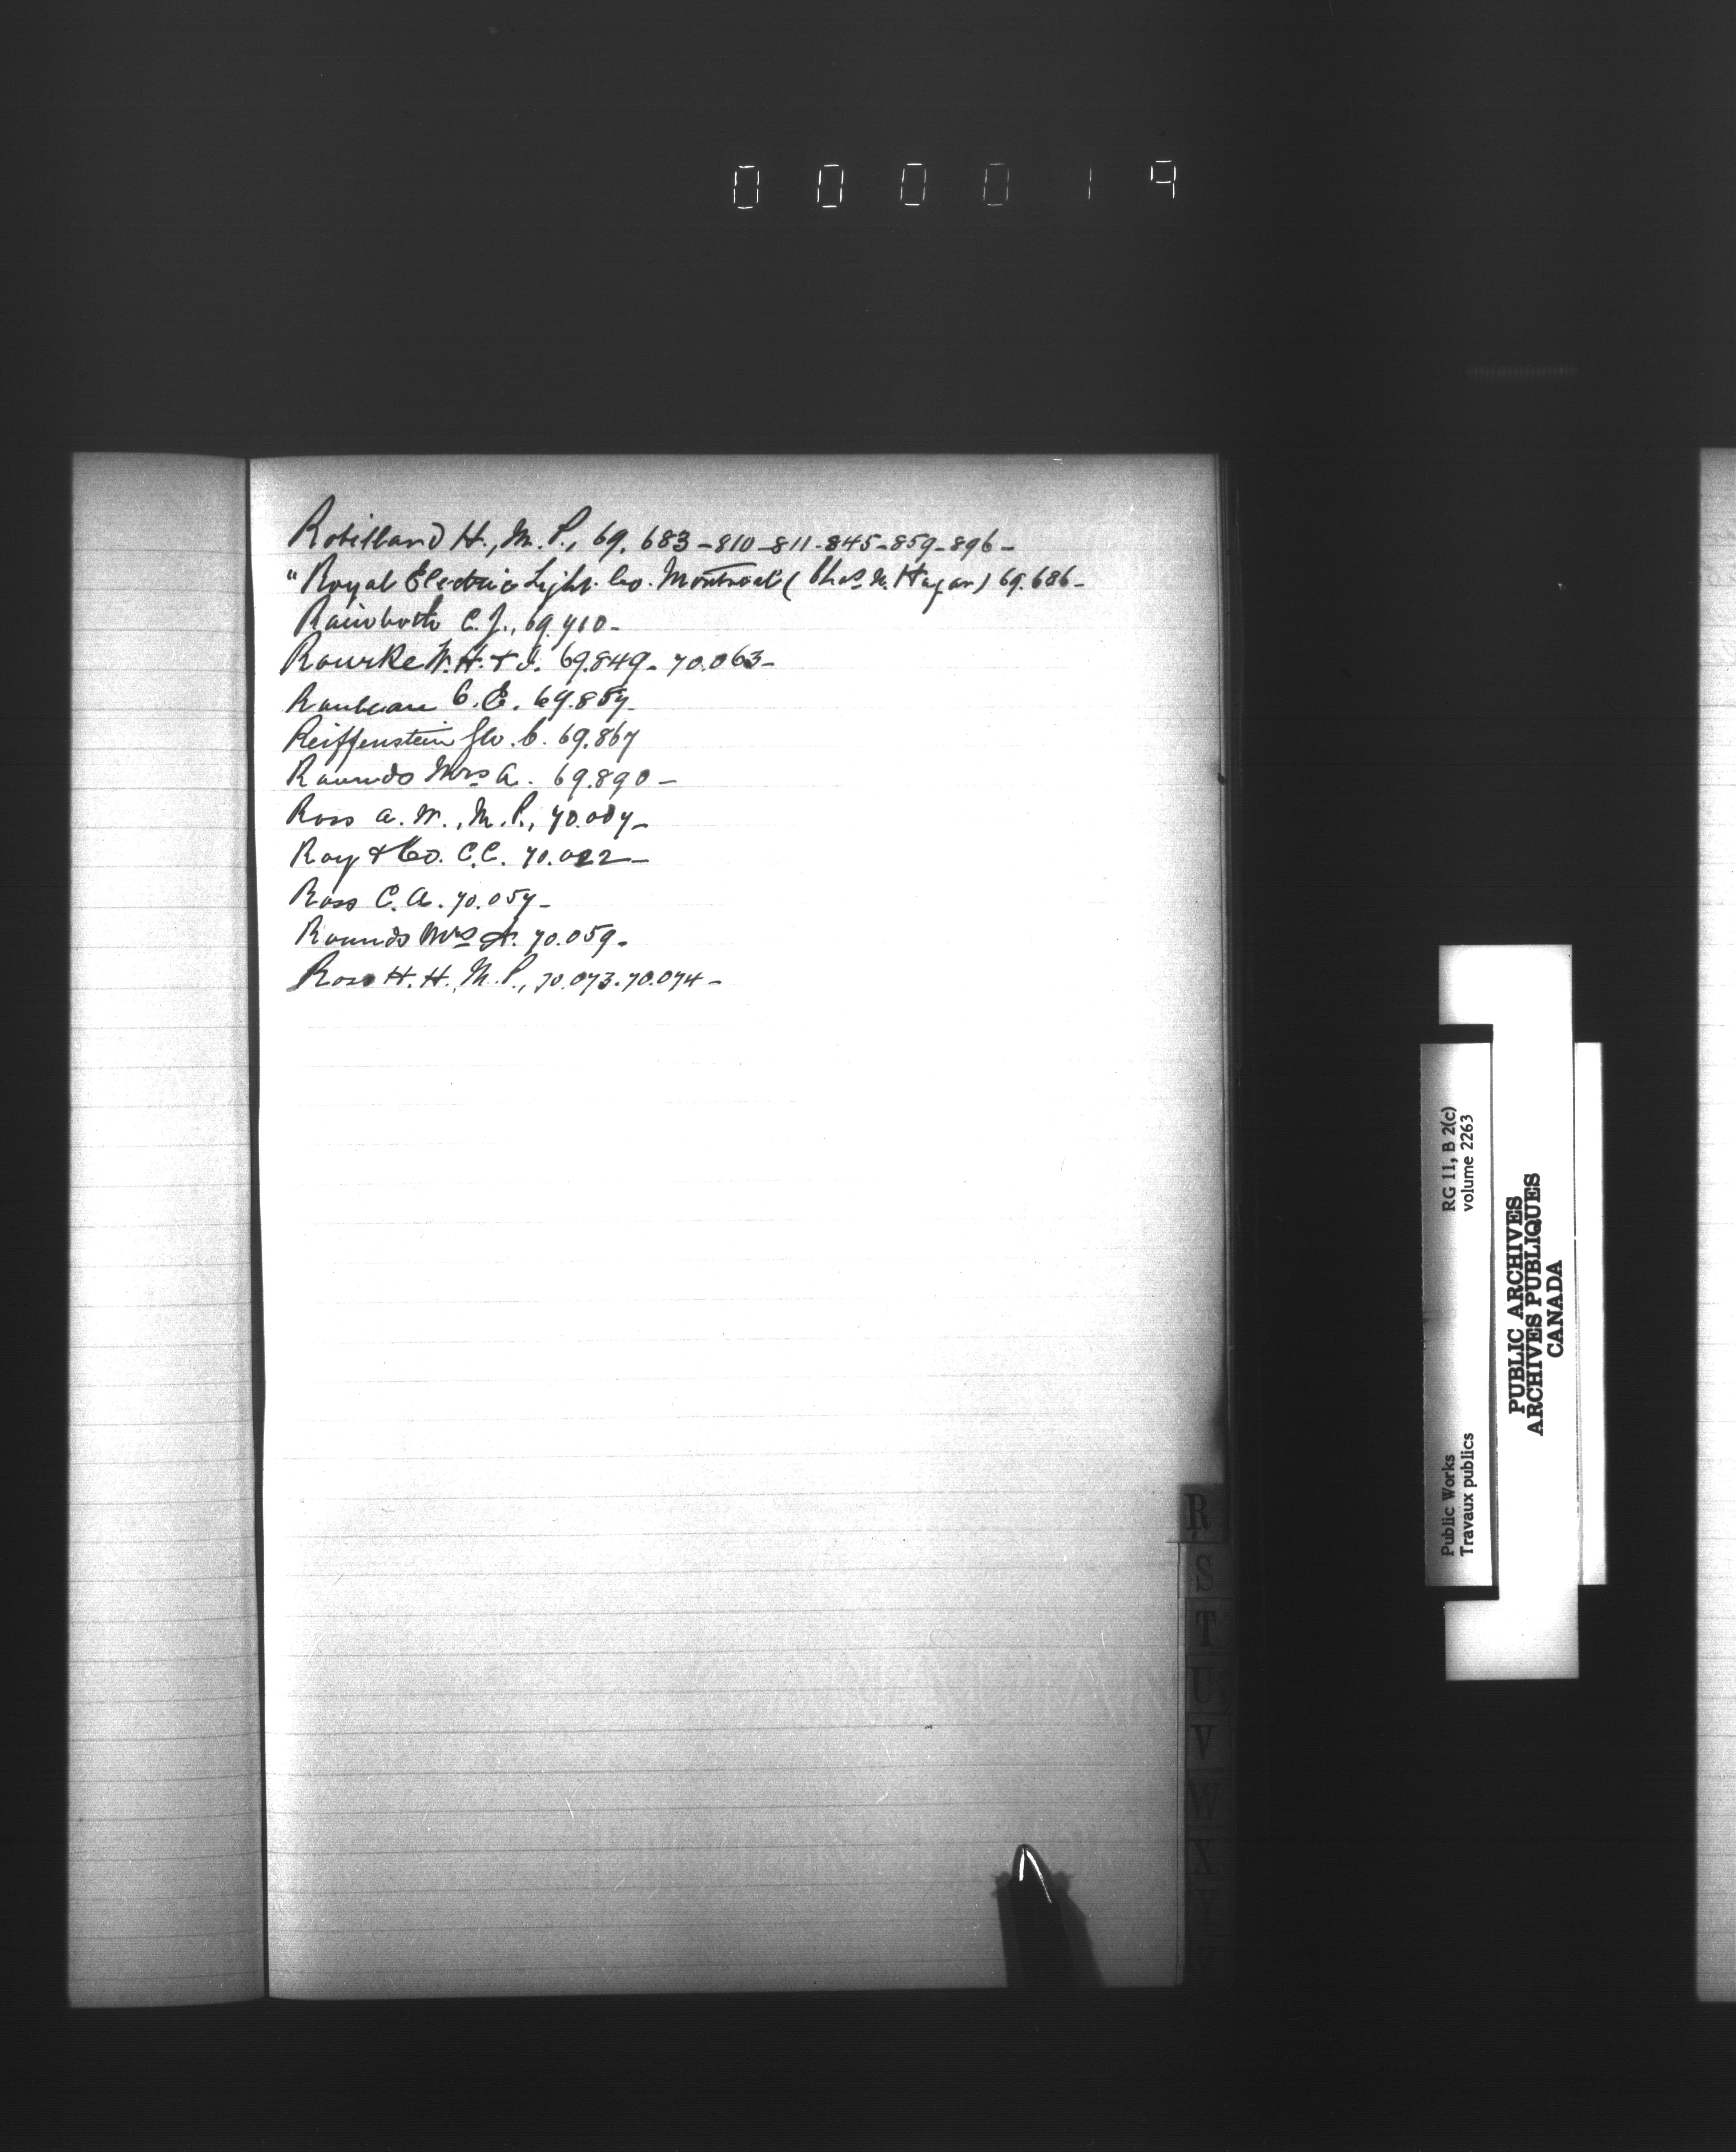 000019
Robillard H., M.P., 69.683-810-811-845-859-896-
"Royal Electric Light Co. Montreal (Chas. W. Hagar) 69.686-
Rainboth C.J., 69.710-
Rourke W.H. & J. 69.849- 70.063-
C.E. 69.857-
Reiffenstein Geo. C. 69.867
Rounds Mrs A. 69.890-
Ross A.W., M.P., 70.007-
Roy & Co. C.C. 70.022-
Ross C.A. 70.057-
Rounds Mrs A. 70.059-
Ross H.H., M.P., 70.073-70.074-
R
S
T
U
V
W
X
Y
Public Works
Travaux publics
RG 11, B 2(c)
volume 2263
PUBLIC ARCHIVES
ARCHIVES PUBLIQUES
CANADA